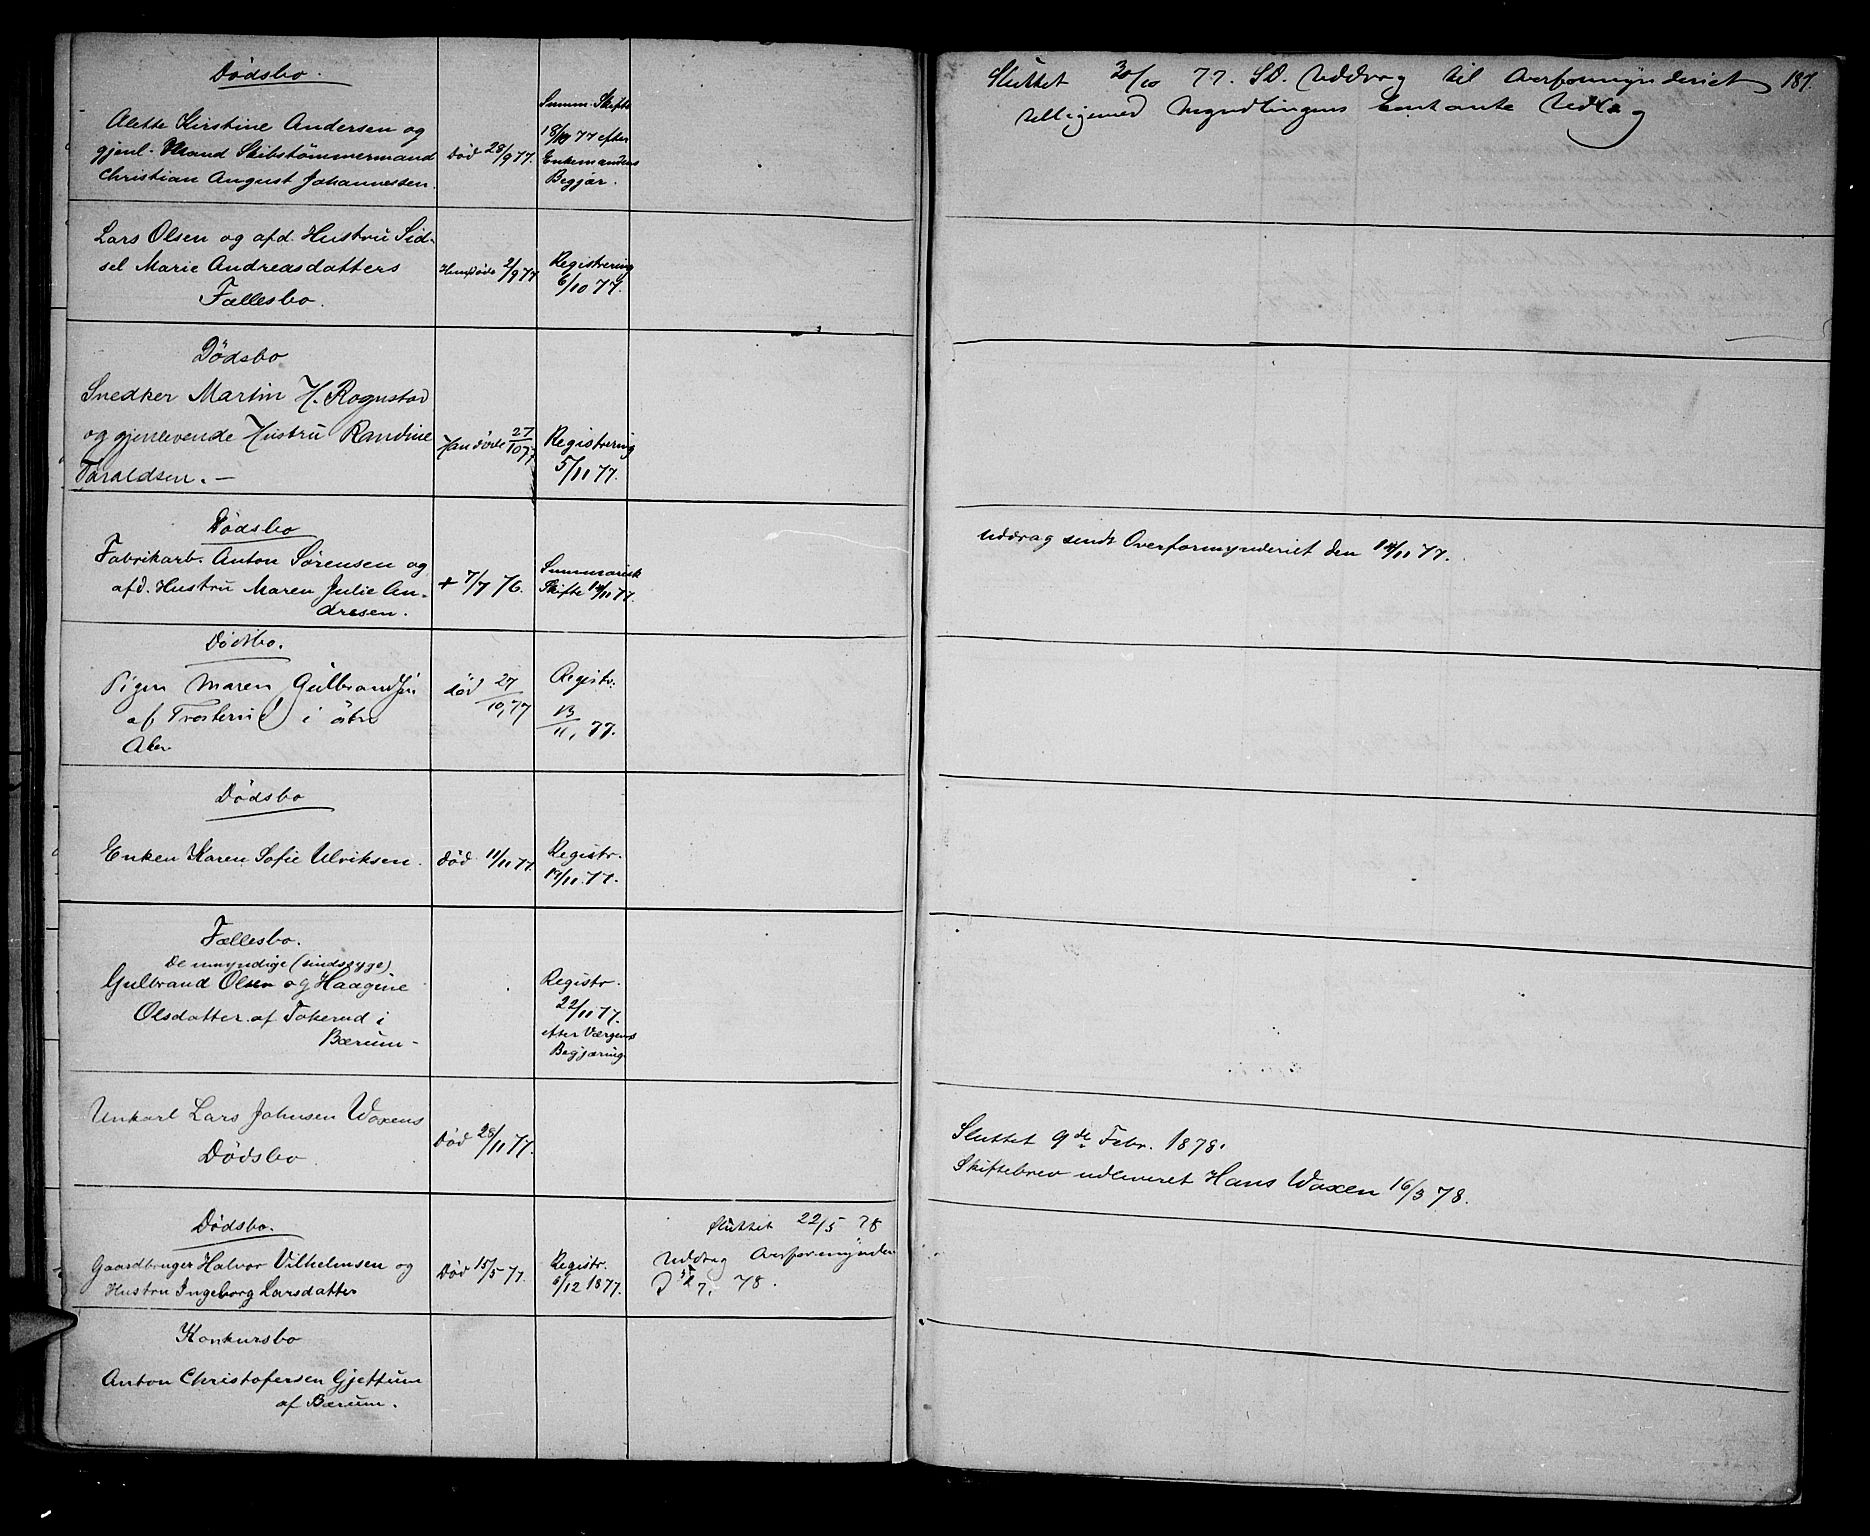 Dødsbo.
Alette Kirstine Andersen og
gjenl. Mand Skibstømmermand
Christian August Johannessen.
Død 28/9 77.
Summ. Skifte
18/10 77 efter
Enkemandens
Begjær.
Sluttet 30/10 77. S.D. Uddrag til Overformynderiet
tilligemed Myndlingens kontante Udlæg
187.
Lars Olsen og afd. Hustru Sid-
sel Marie Andreasdatters
Fællesbo.
Hun døde 2/9 77
Registrering
6/10 77.
Dødsbo
Snedker Martin H. Rognstad
og gjenlevende Hustru Randine
Taraldsen. —
Han døde 27/10 77
Registrering
5/11 77.
Dødsbo
Fabrikarb. Anton Sørensen og
afd. Hustru Maren Julie An-
dresen.
+ 7/7 76.
Summarisk
Skifte 14/11 77.
Uddrag sendt Overformynderiet den 14/11 77.
Dødsbo.
Pigen Maren Gulbrandsen
af Trosterud i Østre
Aker
død 27/10, 77
Registr.
13/11, 77.
Dødsbo
Enken Karen Sofie Ulriksen.
Død 11/11 77.
Registr.
19/11 77.
Fællesbo.
De umyndige (sindssyge)
Gulbrand Olsen og Haagine
Olsdatter af Tokerud i
Bærum -
Registr.
22/11 77.
efter Værgens
Begjæring
Unkarl Lars Johnsen Woxens
Dødsbo
Død 28/11 77.
Sluttet 9de Febr. 1878.
Skiftebrev udleveret Hans Woxen 16/3 78.
Dødsbo.
Gaardbruger Halvor Vilhelmsen og
Hustru Ingeborg Larsdatter
Død 15/5 77.
Registr.
6/12 1877.
Sluttet 22/5 78
Uddrag Overformynder
78.
Konkursbo
Anton Christofersen Gjettum
af Bærum.